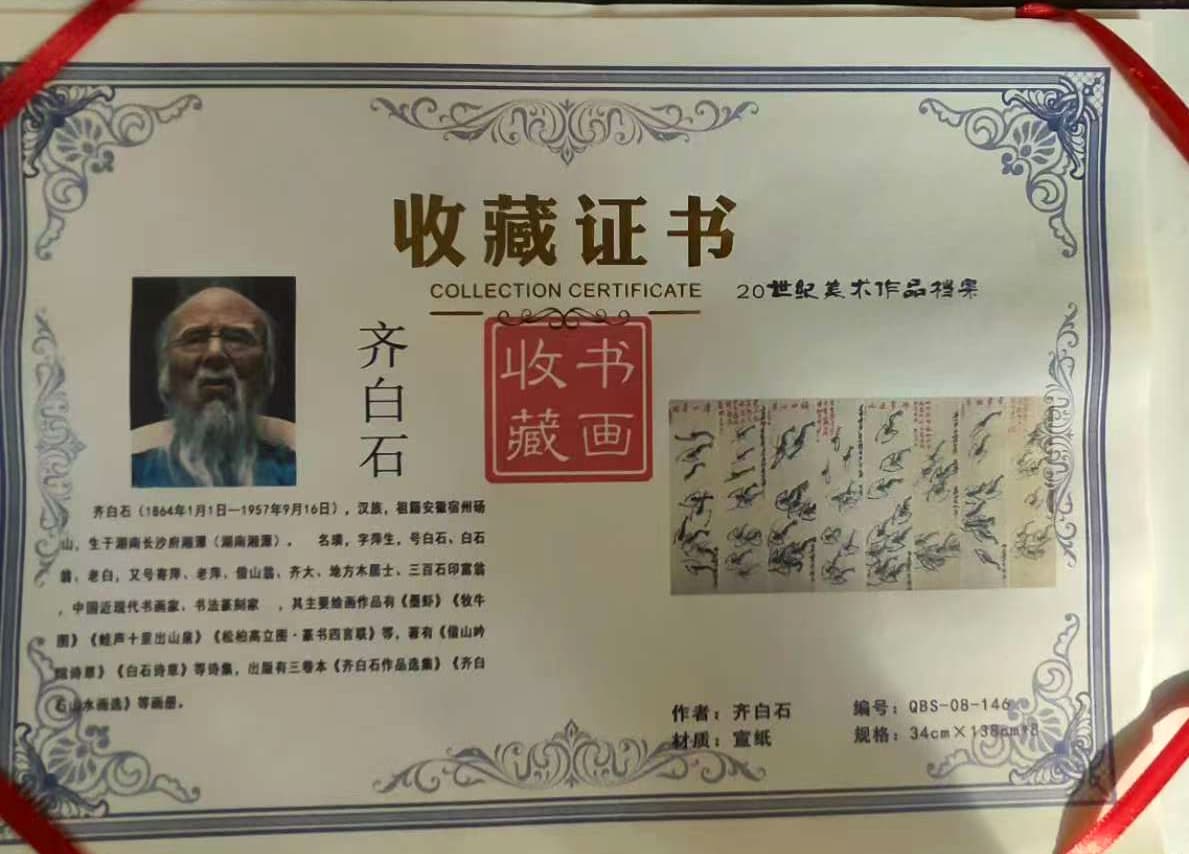 收藏证书
COLLECTION CERTIFICATE
20世纪美术作品档案
齐白石
书画
收藏
齐白石（1864年1月1日—1957年9月16日），汉族，祖籍安徽宿州砀
山，生于湖南长沙府湘潭（湖南湘潭）。 名璜，字萍生，号白石、白石
翁、老白，又号寄萍、老萍、借山翁、齐大、地方木居士、三百石印富翁
，中国近现代书画家、书法篆刻家 ，其主要绘画作品有《墨虾》《牧牛
图》《蛙声十里出山泉》《松柏高立图·篆书四言联》等，著有《借山吟
馆诗草》《白石诗草》等诗集，出版有三卷本《齐白石作品选集》《齐白
石山水画选》等画册。
作者：齐白石
编号：QBS-08-146
材质：宣纸
规格：34cm×138cm*8